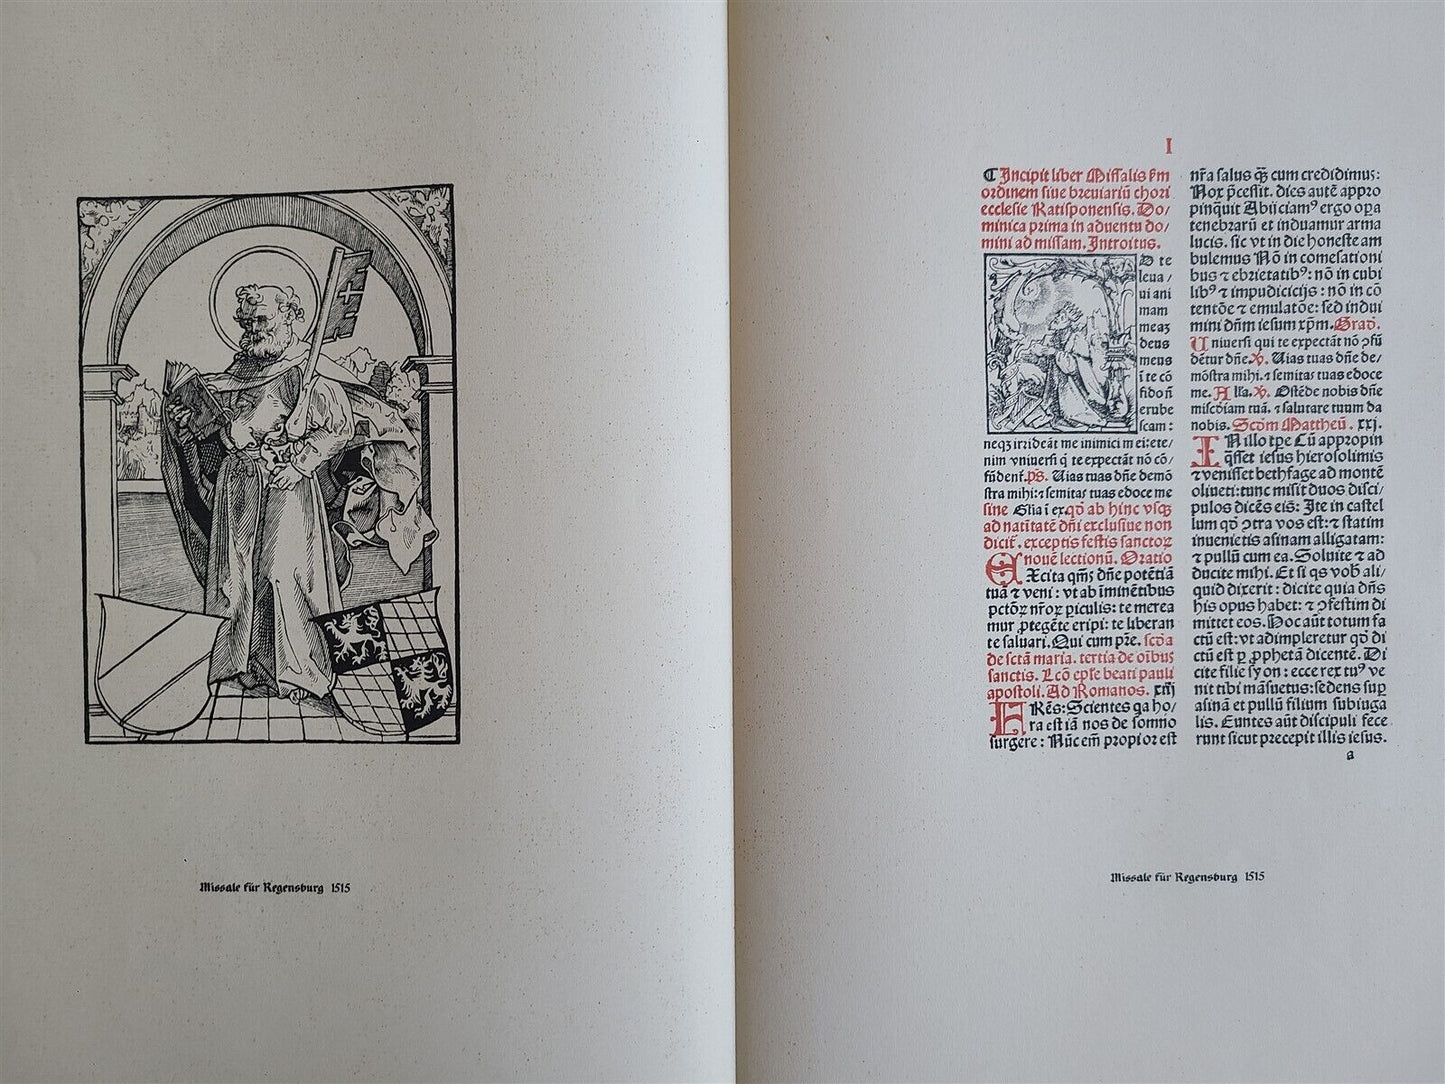 Missale für Regensburg 1515
I
¶ Incipit liber Missalis s̄m
ordinem siue breuiariū chori
ecclesie Ratisponensis. Do/
minica prima in aduentu do/
mini ad missam. Introitus.
D te
leua/
ui ani
mam
meaꝫ
deus
meus
ī te cō
fido nō
erube
scam:
neqꝫ irrideāt me inimici mei: ete/
nim vniuersi q̄ te expectāt nō cō/
fūdent̄. p̄s. Uias tuas dn̄e demō
stra mihi: ⁊ semitas tuas edoce me
sine Glia ī ex. qd̄ ab hinc vsqꝫ
ad natitatē dn̄i exclusiue non
dicit̄. exceptis festis sanctoꝝ
nouē lectionū. Oratio
EXcita qm̄s dn̄e potētiā
tuā ⁊ veni: vt ab īminētibus
pctōꝝ nr̄oꝝ piculis: te merea
mur ꝓtegēte eripi: te liberan
te saluari. Qui cum p̄re. scd̄a
de sctā maria. tertia de oībus
sanctis. Lcō epl̄e beati pauli
apostoli. Ad Romanos. xiij
FRēs: Scientes qa ho/
ra est iā nos de somno
surgere: Nūc em̄ propior est
nr̄a salus qꝫ cum credidimus:
Nox p̄cessit. dies autē appro
pinquit Abijciamꝰ ergo oꝑa
tenebrarū et induamur arma
lucis. sic vt in die honeste am
bulemus Nō in comesationi
bus ⁊ ebrietatibꝰ: nō in cubi
libꝰ ⁊ impudicicijs: nō in cō
tentōe ⁊ emulatōe: sed indui
mini dn̄m iesum xp̄m. Grad̄.
Uniuersi qui te expectāt nō ꝯfū
dētur dn̄e. ℣. Uias tuas dn̄e de/
mōstra mihi. ⁊ semitas tuas edoce
me. Alla. ℣. Ostēde nobis dn̄e
miscd̄iam tuā. ⁊ salutare tuum da
nobis. Scd̄m Mattheū. xxj.
IN illo tp̄e Cū appropin
q̄sset iesus hierosolimis
⁊ venisset bethfage ad montē
oliueti: tunc misit duos disci/
pulos dicēs eis: Ite in castel
lum qd̄ ꝯtra vos est: ⁊ statim
inuenietis asinam alligatam:
⁊ pullū cum ea. Soluite ⁊ ad
ducite mihi. Et si qs vob̄ ali/
quid dixerit: dicite quia dn̄s
his opus habet: ⁊ ꝯfestim di
mittet eos. Hoc aūt totum fa
ctū est: vt adimpleretur qd̄ di
ctū est ꝑ ꝓphetā dicentē. Di
cite filie syon: ecce rex tuꝰ ve
nit tibi māsuetus: sedens suꝑ
asinā et pullū filium subiuga
lis. Euntes aūt discipuli fece
runt sicut precepit illis iesus.
a
Missale für Regensburg 1515